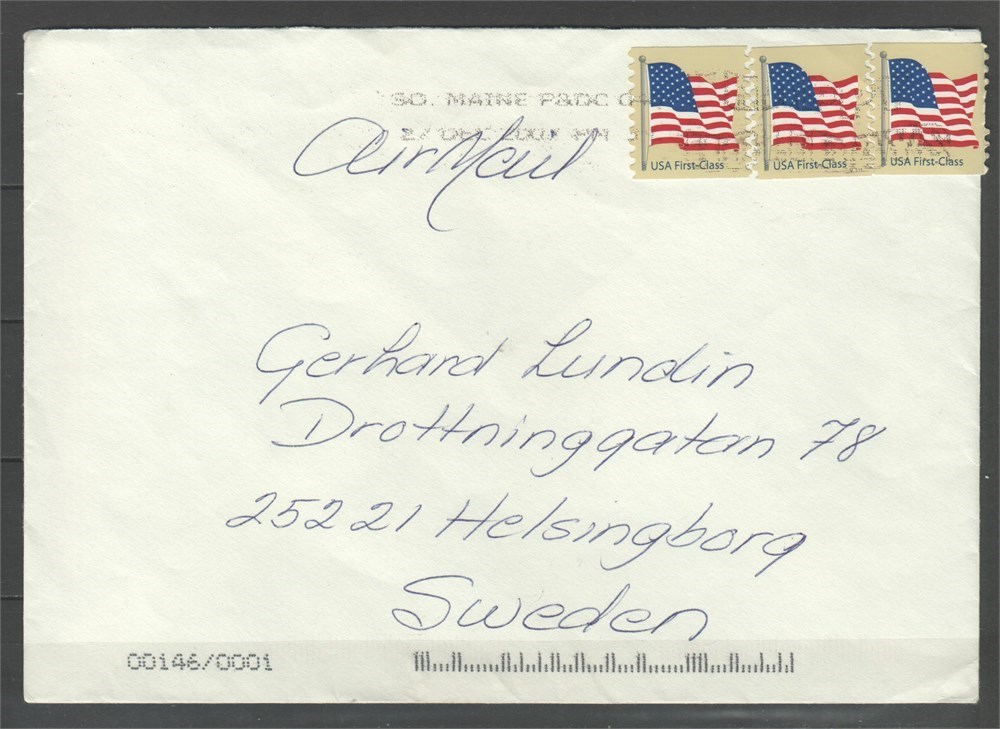 SO. MAINE P&DC
27 DEC 2007 PM
USA First-Class USA First-Class USA First-Class
AirMail
Gerhard Lundin
Drottninggatan 78
25221 Helsingborg
Sweden
00146/0001